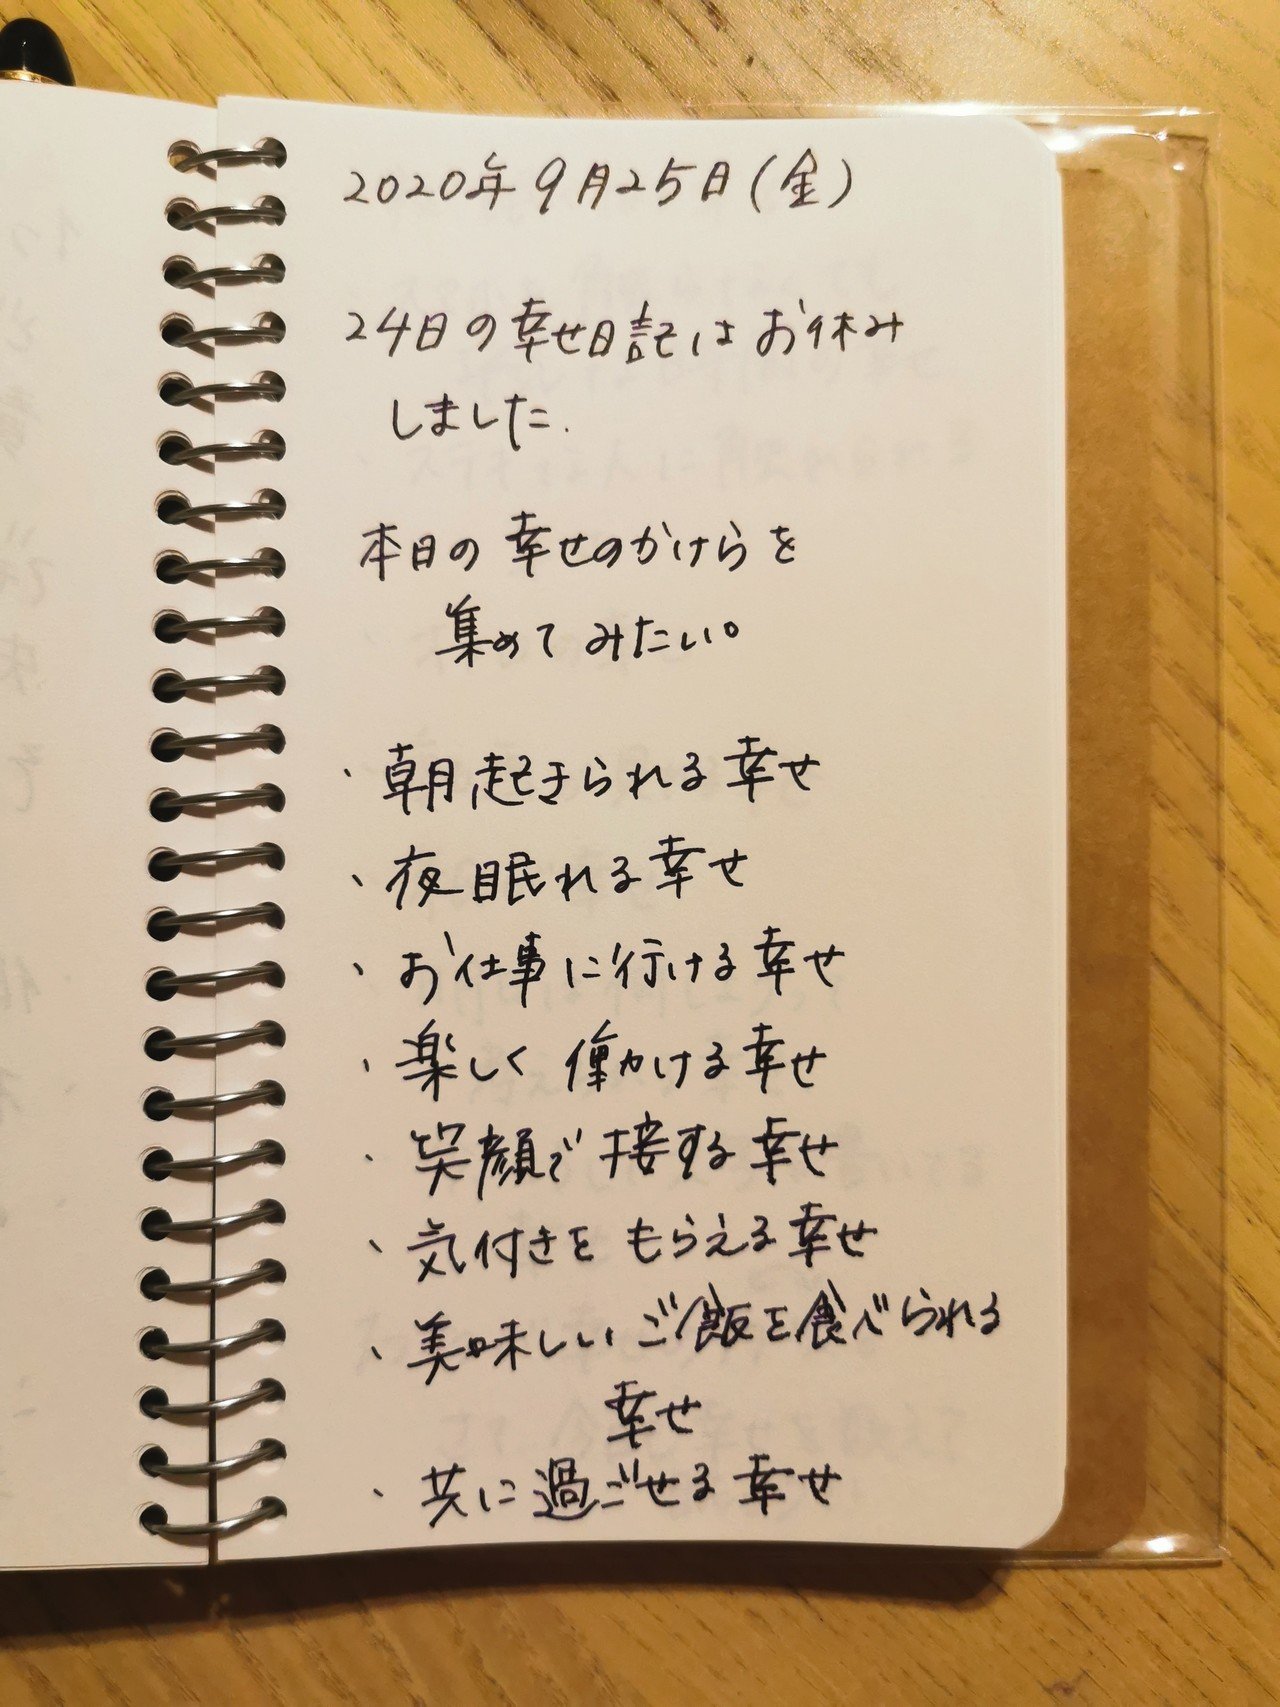 2020年9月25日(金)
24日の幸せ日記はお休み
しました.
本日の幸せのかけらを
集めてみたい。
・朝起きられる幸せ
・夜眠れる幸せ
・お仕事に行ける幸せ
・楽しく働かける幸せ
・笑顔で接する幸せ
・気付きをもらえる幸せ
・美味しいご飯を食べられる
幸せ
・共に過ごせる幸せ